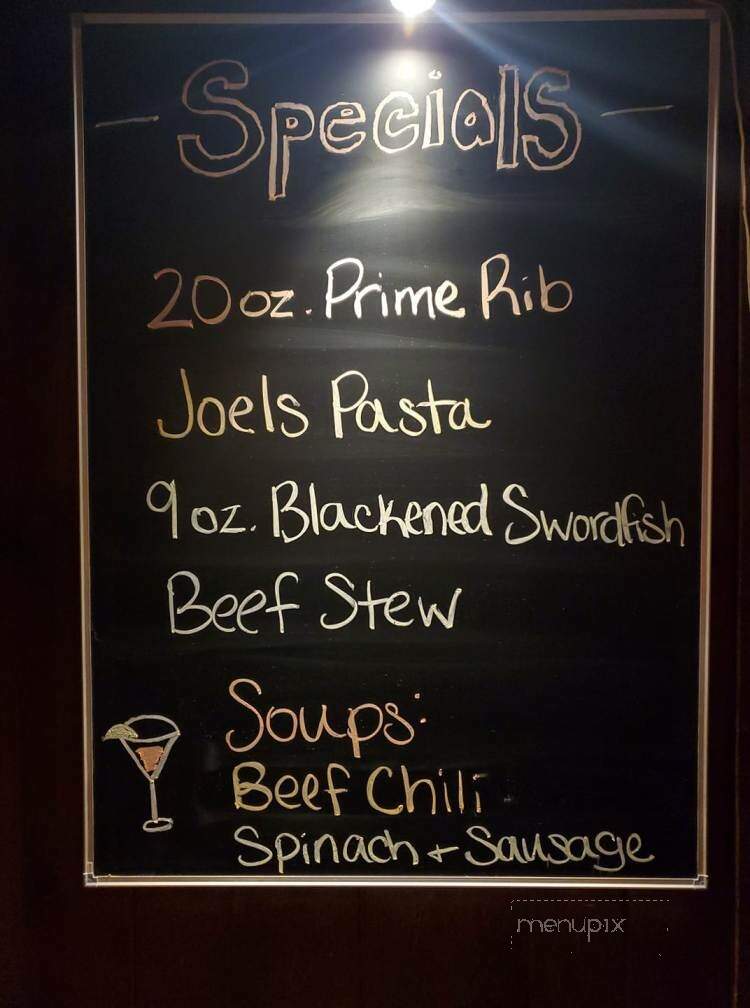 Specials
20 oz. Prime Rib
Joels Pasta
9 oz. Blackened Swordfish
Beef Stew
Soups:
Beef Chili
Spinach + Sausage
menupix